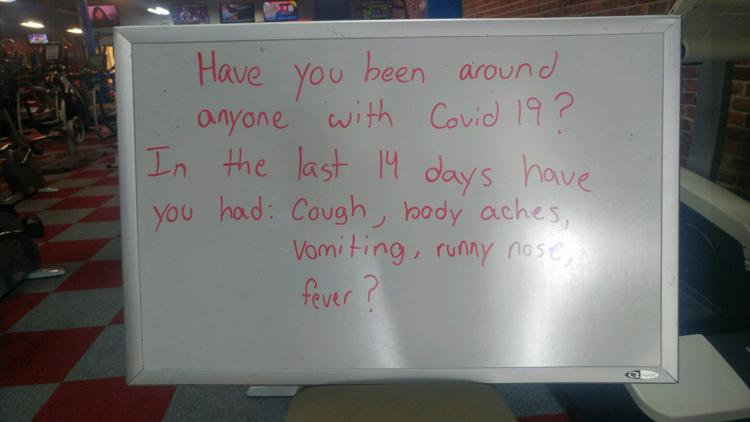 Have you been around
anyone with Covid 19?
In the last 14 days have
you had: Cough, body aches,
vomiting, runny nose,
fever?